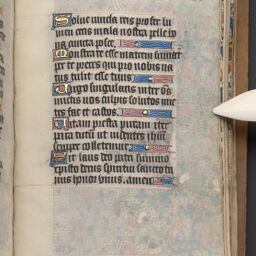 Solve vincla reis profer lu
men cecis mala nostra pelle bo
na cuncta posce.
Monstra te esse matrem sumat
per te preces qui pro nobis na
tus tulit esse tuus
Virgo singularis inter os
mitis nos culpis solutos mi
tes fac et castos.
Vitam presta puram iter
para tutum ut videntes ihm
semper colletemur.
Sit laus deo patri summo
cristo decus spiritui sancto tri
nus honor unus. amen